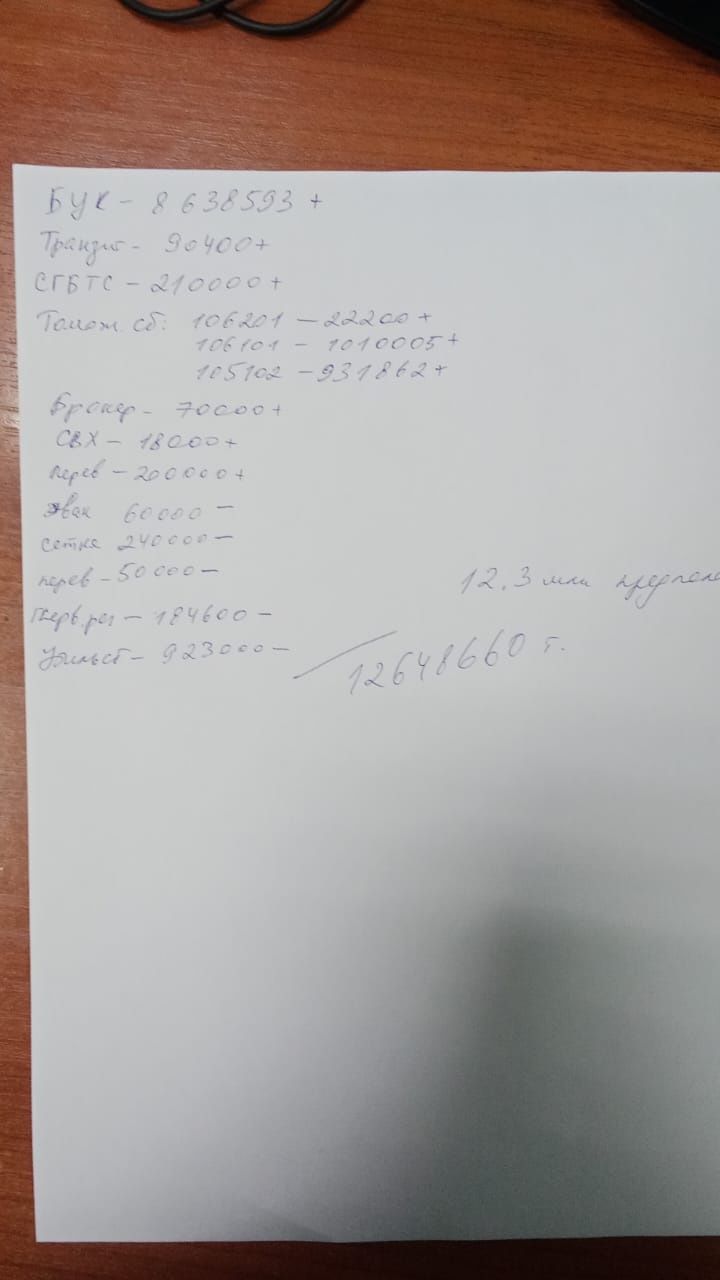 БУК - 8 638593 +
Транзит - 90400 +
СГБТС - 210000 +
Тамож. сб: 106201 - 22200 +
106101 - 1010005 +
105102 - 931862 +
Брокер - 70000 +
СВХ - 18000 +
перев - 200000 +
Эвак 60000 -
сетка 240000 -
перев - 50000 -
12.3 млн предпола
Перв. рег - 184600 -
Утильсб - 923000 -
12648660 т.